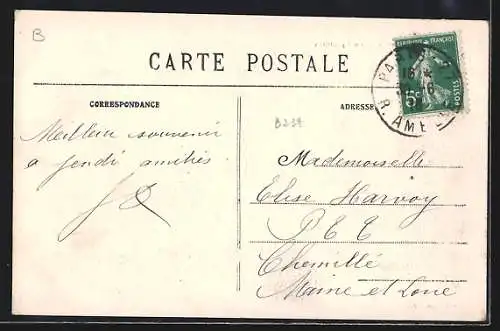 B
CARTE POSTALE
CORRESPONDANCE
ADRESSE
REPUBLIQUE FRANÇAISE
POSTES
5c
PARIS
16
R. AMEL
B238
Meilleur souvenir
à jeudi amitiés
Mademoiselle
Elise Harvoy
P E E
Chemillé
Maine et Loire